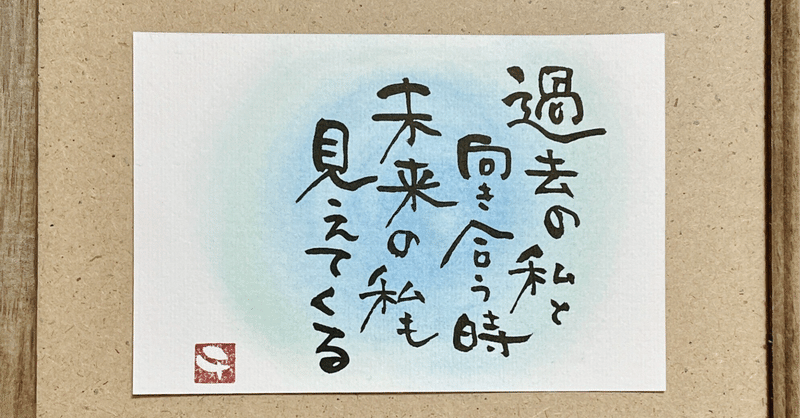 過去の私と
向き合う時
未来の私も
見えてくる